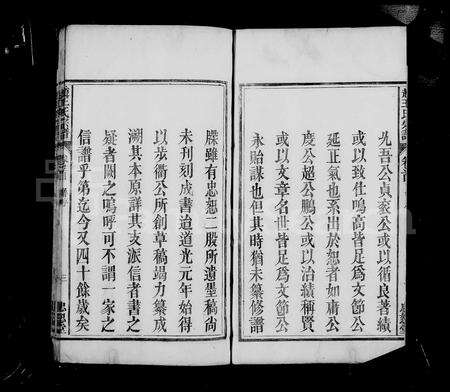 九吾公貞裘公或以循良著績
或以致仕鳴高皆足爲文節公
延正氣也系出於恕者如庸公
慶公超公鵬公或以治績稱賢
或以文章名世皆足爲文節公
永貽謀也但其時猶未纂修譜
牒雖有忠恕二股所遺墨稿尚
未刊刻成書迨道光元年始得
以步衢公所創草稿竭力纂成
溯其本原詳其支派信者書之
疑者闕之嗚呼可不謂一家之
信譜乎第迄今又四十餘歲矣